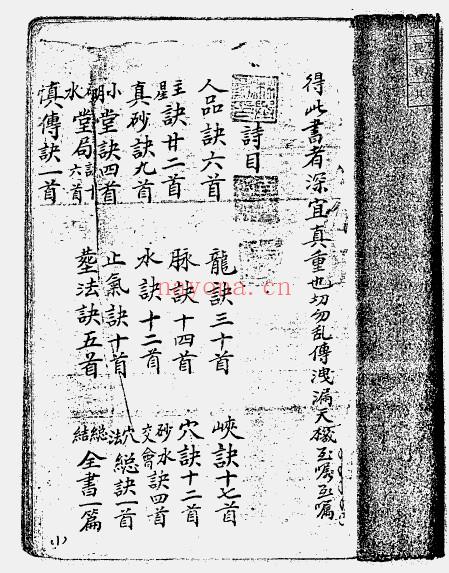 得此書者深宜真重也切勿乱傳洩漏天機至囑至囑
詩目
人品訣六首 龍訣三十首 峽訣十七首
主星訣廿二首 脉訣十四首 穴訣十二首
真砂訣九首 水訣十二首 砂水交會訣四首
小明堂訣四首 止氣訣十首 穴法総訣一首
水堂局訣十六首 塟法訣五首 総結全書一篇
慎傳訣一首
(1)
nayona.cn